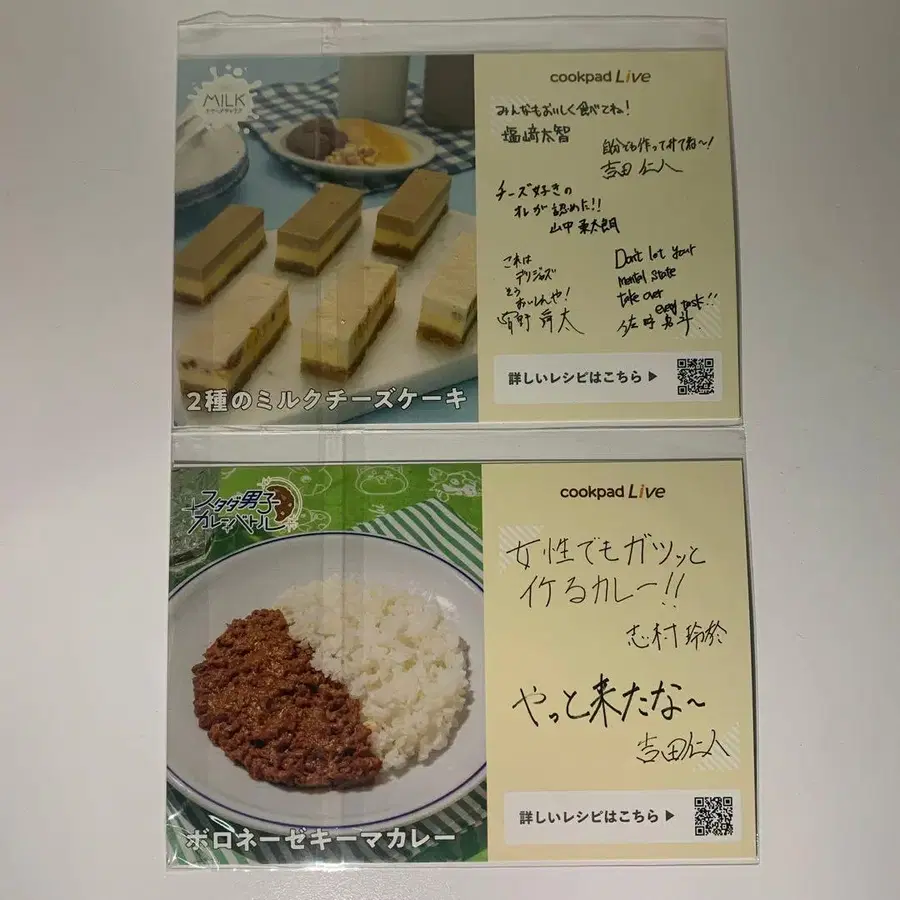 MILK
cookpad Live
みんなもおいしく食べてね!
塩﨑太智
自分でも作ってみてね〜!
吉田仁人
チーズ好きの
オレが認めた!!
山中柔太朗
これは
デリシャス
そう
おいしんや!
曽野舜太
Don't let your
mental state
take over
every task!!
佐野勇斗
詳しいレシピはこちら ▶
2種のミルクチーズケーキ
スタダ男子
カレーバトル
cookpad Live
女性でもガツッと
イケるカレー!!
志村玲於
やっと来たな〜
吉田仁人
詳しいレシピはこちら ▶
ボロネーゼキーマカレー